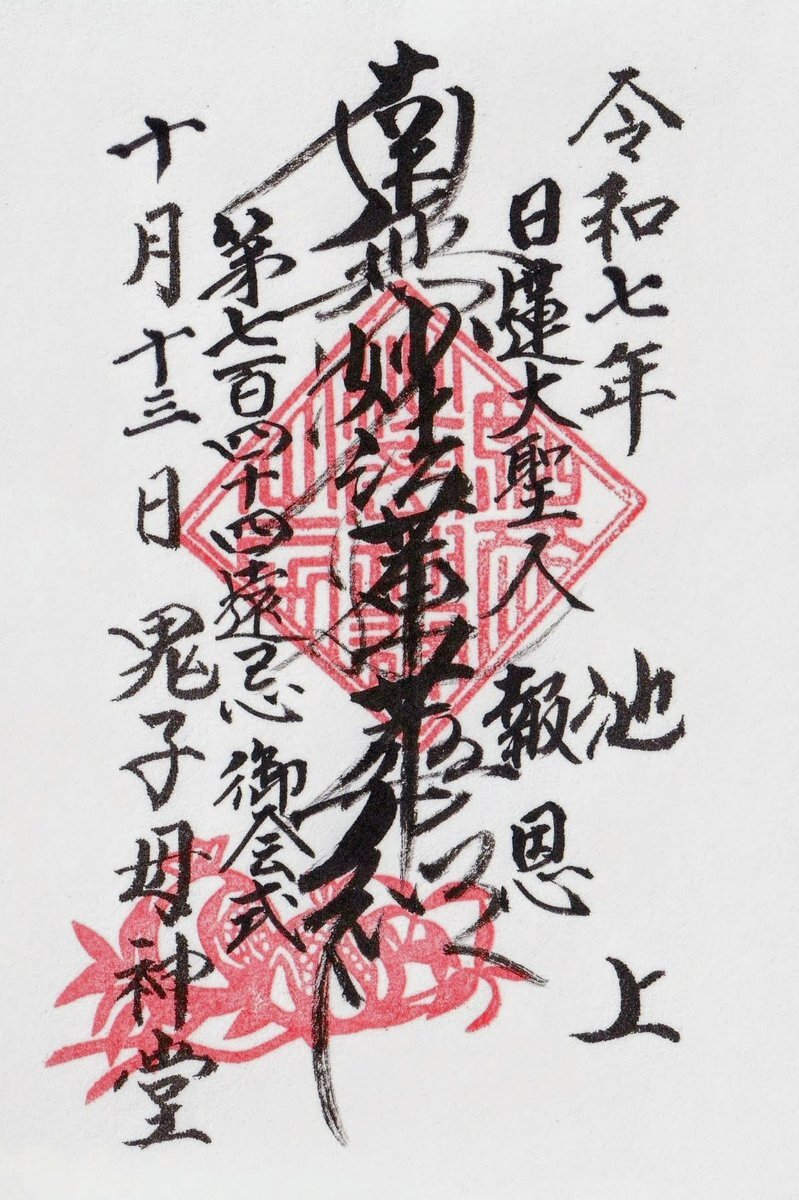 令和七年 池上
日蓮大聖人 報恩
南無妙法蓮華経
第七百四十四遠忌 御会式
十月十三日 鬼子母神堂